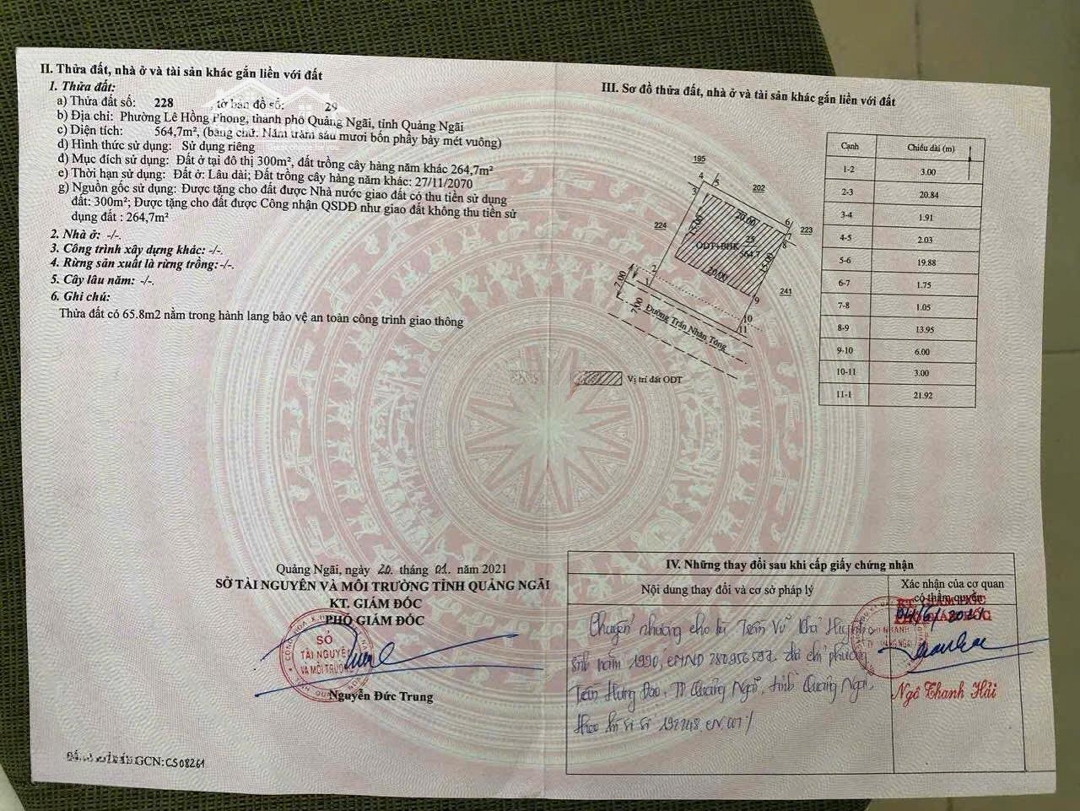 II. Thửa đất, nhà ở và tài sản khác gắn liền với đất
1. Thửa đất:
a) Thửa đất số: 228 , tờ bản đồ số: 29
b) Địa chỉ: Phường Lê Hồng Phong, thành phố Quảng Ngãi, tỉnh Quảng Ngãi
c) Diện tích: 564,7m², (bằng chữ: Năm trăm sáu mươi bốn phẩy bảy mét vuông)
d) Hình thức sử dụng: Sử dụng riêng
đ) Mục đích sử dụng: Đất ở tại đô thị 300m², đất trồng cây hàng năm khác 264,7m²
e) Thời hạn sử dụng: Đất ở: Lâu dài; Đất trồng cây hàng năm khác: 27/11/2070
g) Nguồn gốc sử dụng: Được tặng cho đất được Nhà nước giao đất có thu tiền sử dụng
đất: 300m²; Được tặng cho đất được Công nhận QSDĐ như giao đất không thu tiền sử
dụng đất : 264,7m²
2. Nhà ở: -/-.
3. Công trình xây dựng khác: -/-.
4. Rừng sản xuất là rừng trồng:-/-.
5. Cây lâu năm: -/-.
6. Ghi chú:
Thửa đất có 65.8m2 nằm trong hành lang bảo vệ an toàn công trình giao thông
Quảng Ngãi, ngày 20 tháng 01 năm 2021
SỞ TÀI NGUYÊN VÀ MÔI TRƯỜNG TỈNH QUẢNG NGÃI
KT. GIÁM ĐỐC
PHÓ GIÁM ĐỐC
SỞ
TÀI NGUYÊN
VÀ MÔI TRƯỜNG
Nguyễn Đức Trung
GCN: CS08261
III. Sơ đồ thửa đất, nhà ở và tài sản khác gắn liền với đất
195
4 5
202
3
20.00
6
7
223
8
224
15.00
25
ODT+BHK
564.7
15.00
2
20.00
9
241
1
7.00
7.00
10
11
Đường Trần Nhân Tông
Vị trí đất ODT
Cạnh Chiều dài (m)
1-2 3.00
2-3 20.84
3-4 1.91
4-5 2.03
5-6 19.88
6-7 1.75
7-8 1.05
8-9 13.95
9-10 6.00
10-11 3.00
11-1 21.92
IV. Những thay đổi sau khi cấp giấy chứng nhận
Nội dung thay đổi và cơ sở pháp lý
Xác nhận của cơ quan
có thẩm quyền
Chuyển nhượng cho bà Trần Vũ
sinh năm 1990, CMND địa chỉ phường
Trần Hưng Đạo, TP Quảng Ngãi, tỉnh Quảng Ngãi,
theo hồ sơ số
Ngô Thanh Hải